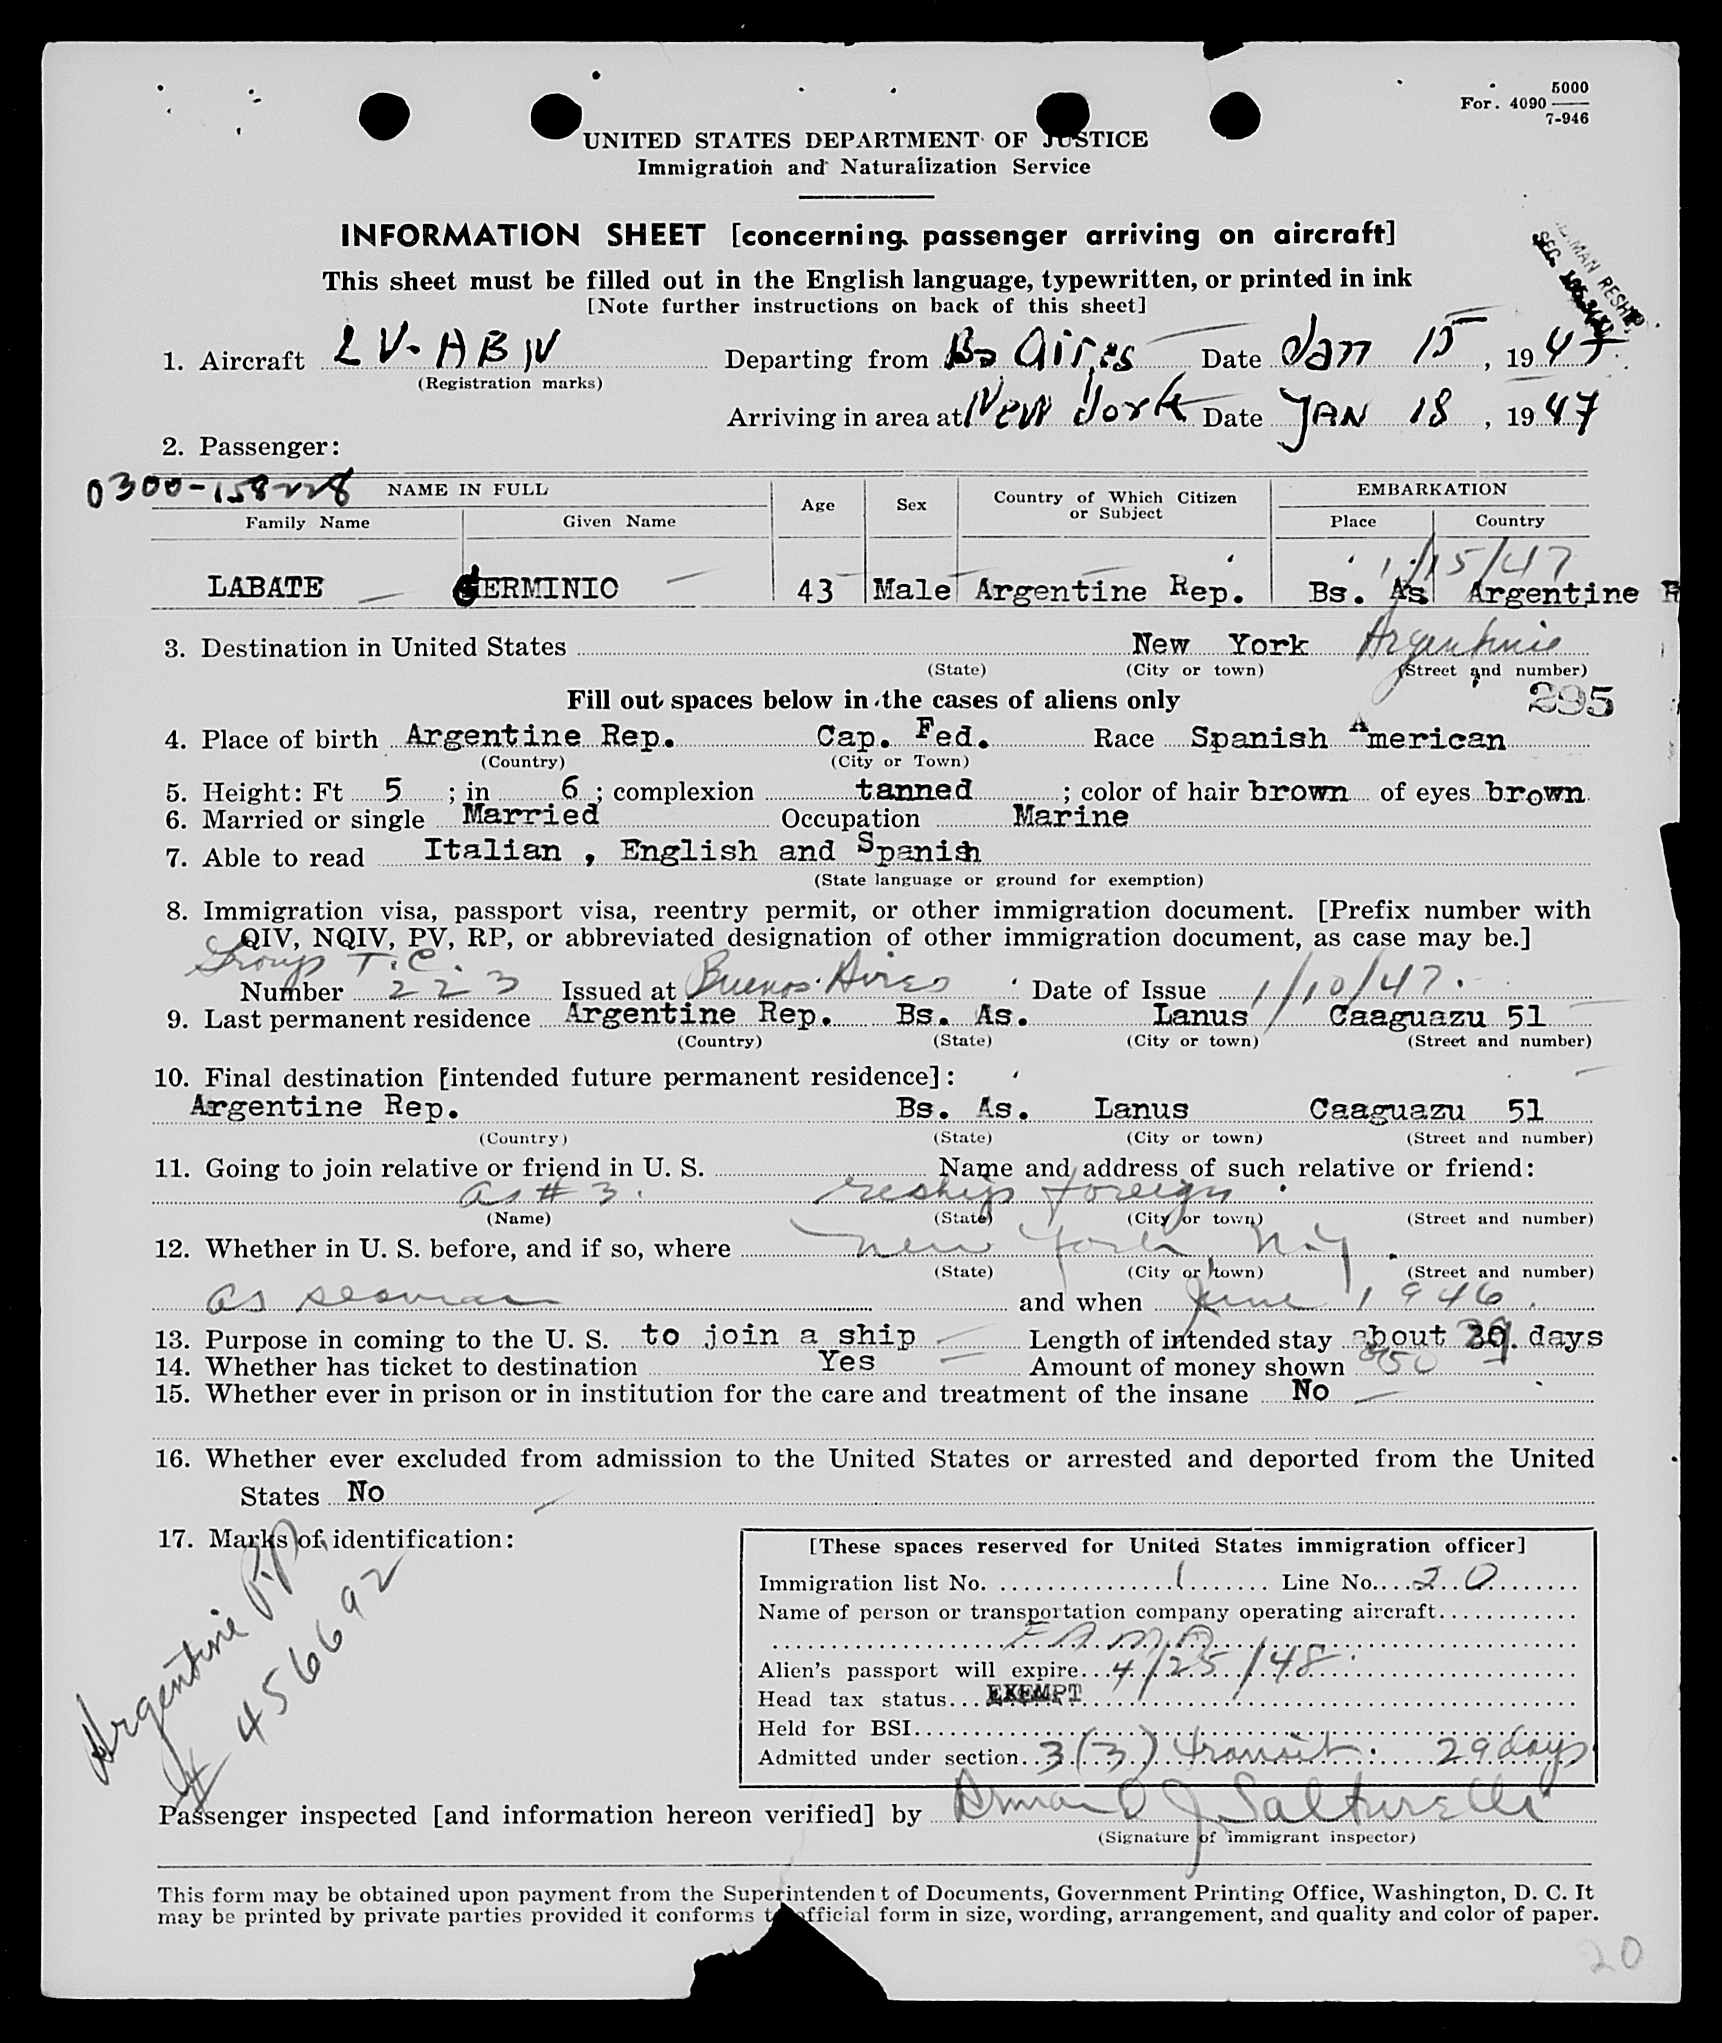 5000
For. 4090
7-946
UNITED STATES DEPARTMENT OF JUSTICE
Immigration and Naturalization Service
INFORMATION SHEET [concerning passenger arriving on aircraft]
This sheet must be filled out in the English language, typewritten, or printed in ink
[Note further instructions on back of this sheet]
SEAMAN RESHIP
SEC.
1. Aircraft LV-ABN Departing from Bs Aires Date Jan 15, 1947
(Registration marks)
Arriving in area at New York Date JAN 18, 1947
2. Passenger:
0300-158228 NAME IN FULL Age Sex Country of Which Citizen or Subject EMBARKATION
Family Name Given Name Place Country
1/15/47
LABATE GERMINIO 43 Male Argentine Rep. Bs. As Argentine R
3. Destination in United States New York Argentine
(State) (City or town) (Street and number)
Fill out spaces below in the cases of aliens only 295
4. Place of birth Argentine Rep. Cap. Fed. Race Spanish American
(Country) (City or Town)
5. Height: Ft 5 ; in 6 ; complexion tanned ; color of hair brown of eyes brown
6. Married or single Married Occupation Marine
7. Able to read Italian , English and Spanish
(State language or ground for exemption)
8. Immigration visa, passport visa, reentry permit, or other immigration document. [Prefix number with
QIV, NQIV, PV, RP, or abbreviated designation of other immigration document, as case may be.]
Group T.C.
Number 223 Issued at Buenos Aires Date of Issue 1/10/47.
9. Last permanent residence Argentine Rep. Bs. As. Lanus Caaguazu 51
(Country) (State) (City or town) (Street and number)
10. Final destination [intended future permanent residece]:
Argentine Rep. Bs. As. Lanus Caaguazu 51
(Country) (State) (City or town) (Street and number)
11. Going to join relative or friend in U. S. Name and address of such relative or friend:
as # 3. reship foreign.
(Name) (State) (City or town) (Street and number)
12. Whether in U. S. before, and if so, where New York, N.Y.
(State) (City or town) (Street and number)
as seaman and when June 1946.
13. Purpose in coming to the U. S. to join a ship Length of intended stay about 29. days
14. Whether has ticket to destination Yes Amount of money shown $50
15. Whether ever in prison or in institution for the care and treatment of the insane No
16. Whether ever excluded from admission to the United States or arrested and deported from the United
States No
17. Marks of identification:
Argentine P.P.
# 456692
[These spaces reserved for United States immigration officer]
Immigration list No. 1 Line No. 20
Name of person or transportation company operating aircraft
FAMA
Alien's passport will expire 4/25/48
Head tax status EXEMPT
Held for BSI
Admitted under section 3(3) transit. 29 days
Passenger inspected [and information hereon verified] by Armand J. Salturelli
(Signature of immigrant inspector)
This form may be obtained upon payment from the Superintendent of Documents, Government Printing Office, Washington, D. C. It
may be printed by private parties provided it conforms to official form in size, wording, arrangement, and quality and color of paper.
20